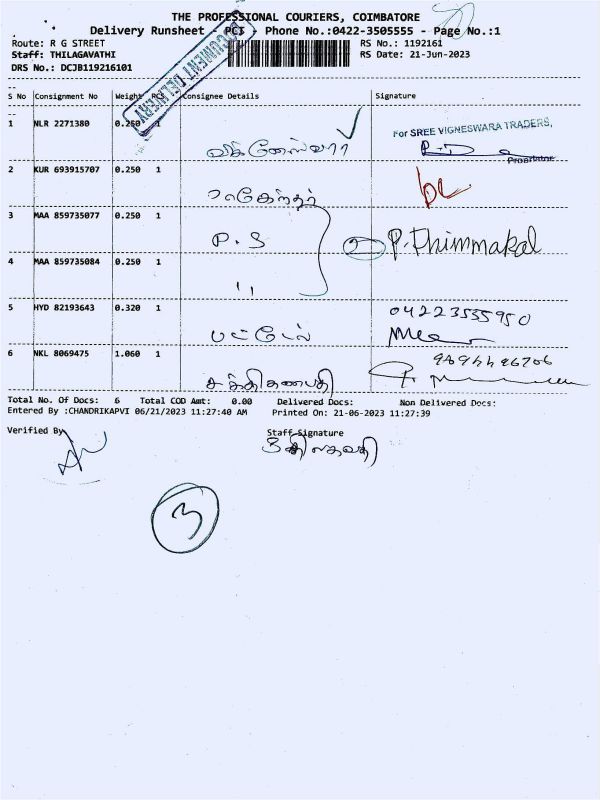 THE PROFESSIONAL COURIERS, COIMBATORE
Delivery Runsheet - PCT - Phone No.:0422-3505555 - Page No.:1
Route: R G STREET
RS No.: 1192161
Staff: THILAGAVATHI
RS Date: 21-Jun-2023
DRS No.: DCJB119216101
DOCUMENT DELIVERY
S No Consignment No Weight PCS Consignee Details Signature
1 NLR 2271380 0.250 1
விக்னேஸ்வரா
For SREE VIGNESWARA TRADERS,
Proprietor
2 KUR 693915707 0.250 1
3 MAA 859735077 0.250 1
P. S
2 P. Thimmakal
4 MAA 859735084 0.250 1
"
5 HYD 82193643 0.320 1
பட்டேல்
04223555950
6 NKL 8069475 1.060 1
சக்திகணபதி
Total No. Of Docs: 6 Total COD Amt: 0.00 Delivered Docs: Non Delivered Docs:
Entered By :CHANDRIKAPVI 06/21/2023 11:27:40 AM Printed On: 21-06-2023 11:27:39
Verified By
Staff Signature
3